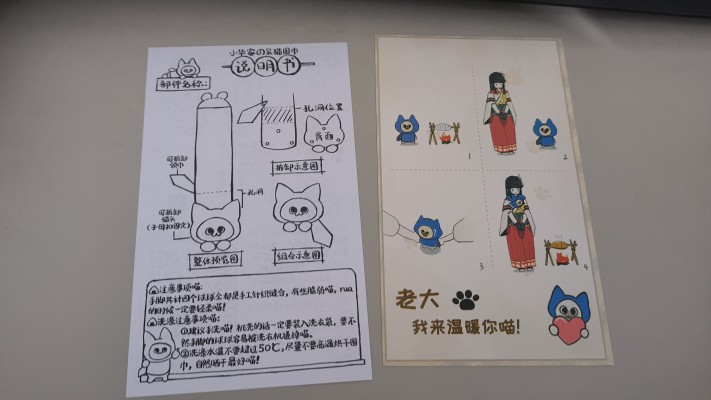 小笨家の呆猫围巾
说明书
部件名称:
孔洞位置
背面
拆卸示意图
可拆卸
领巾
孔洞
可拆卸
猫头
(子母扣固定)
整体预览图
组合示意图
注意事项喵:
手脚共计四个球球全都是手工针织缝合，有些脆弱喵，rua
的时候一定要轻柔喵!
洗涤注意事项喵:
①建议手洗喵! 机洗的话一定要装入洗衣袋，要不
然手脚的球球容易被洗衣机连掉喵。
②洗涤水温不要超过50℃，尽量不要高温烘干围
巾，自然晒干最好喵!
1
2
3
4
老大
我来温暖你喵!